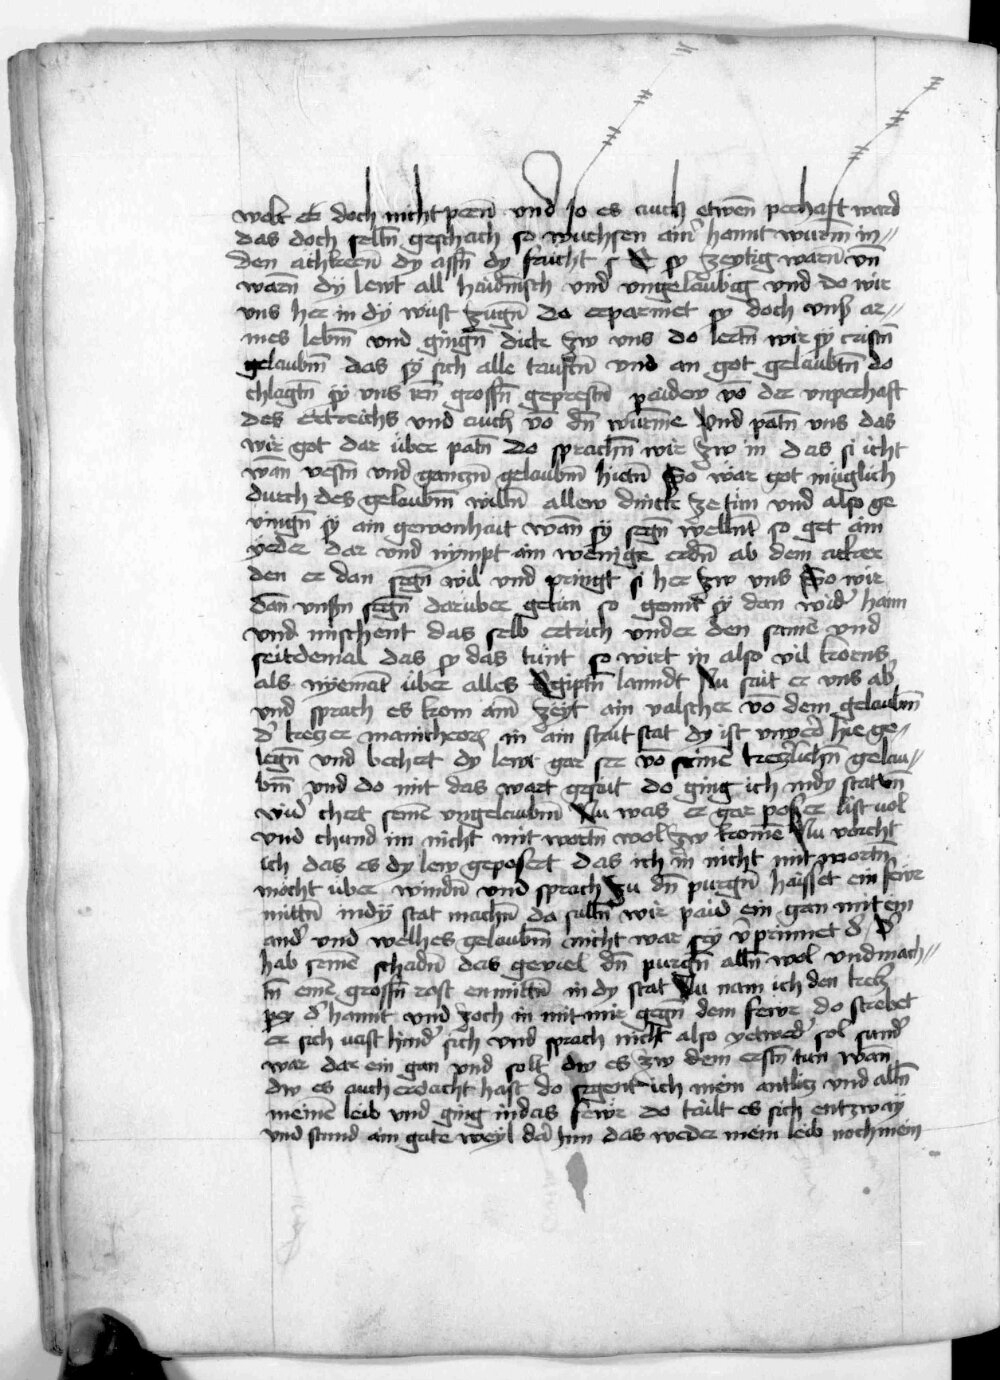 wolt er doch nicht pern̄ und so es auch etwen̄ perhaft ward
das doch seltn̄ geschach so wuchsen ain͛ hannt wurm̄ in//
den achkern̄ dy assn̄ dy frücht E sy zeytig warn̄ vn̄
warn̄ dy lewt all haidnisch und ungelaubig und do wir
uns her in dy wüst zugn̄ do erparmet sy doch uns͛ ar//
mes lebm̄ und gingn̄ dick zw uns do lertn̄ wir sy cristn̄
gelaubm̄ das sy sich alle tauftn̄ und an got gelaubtn̄ do
chlagtn̄ sy uns irn̄ grossn̄ geprestn̄ paiden vō der unperhaft
des ertreichs und auch vō dn̄ wurme Und patn̄ uns das
wir got dar über patn̄ do sprachn̄ wir zw in das si icht
wan̄ vestn̄ und ganczn̄ gelaubm̄ hietn̄ So wär got müglich
durch des gelaubm̄ willn̄ allew dinck ze tun und also ge
vingn̄ sy ain gewonhait wan̄ sy segn̄ wellnt so get ain
yeder dar und nympt ain wenige erdn̄ ab dem acker
den er dan segn̄ wil und pringt si her zw uns So wir
dan̄ unsn̄ segn̄ darüber getun so gemt sy dan wid͛ haim
und mischent das selb ertrich under den samē und
seitdemal das sy das tünt so wirt in also vil korns
als nyemāt über alles Egiptn̄ lanndt Nu sait er uns ab͛
und sprach es kom ainē zeyt ain valscher vō dem gelaubm̄
d͛ keczer manicheorꝫ in ain stat stat dy ist unver͛ hie ge//
legn̄ und bechert dy lewt gar ser vō seinē keczlichn̄ gelau//
bm̄ und do mir das wart gesait do ging ich in dy stat un̄
wid͛ chert seinē ungelaubm̄ Nu was er gar poser list vol
und chund im nicht mit wortn̄ wol zw komē Nu vorcht
ich das es dy lew geposert das ich in nicht mit wortn̄
mocht über windn̄ und sprach zu dn̄ purgn̄ haisset ein fewr
mittn̄ in dy stat machn̄ da sulln̄ wir paid ein gan mit ein
and͛ und welhes gelaubm̄ nicht war sey v͛prinnet d͛ d͛
hab seinē schadn̄ das geviel dn̄ purgn̄ alln̄ wol und mach//
tn̄ einē grossn̄ rost enmittn̄ in dy stat Nu nam ich den kecz͛
pey d͛ hannt und zoch in mit mir gegn̄ dem fewr do strebet
er sich vast hind͛ sich und sprach nicht also yetwed͛ sol sund͛
war dar ein gan und solt dw es zw dem erstn̄ tun wan̄
dw es auch erdacht hast do segent ich mein antlicz und alln̄
meinē leib und ging in das fewr do tailt es sich entzway
und stund ain gute weyl da͛ inn das weder mein leib noch mein